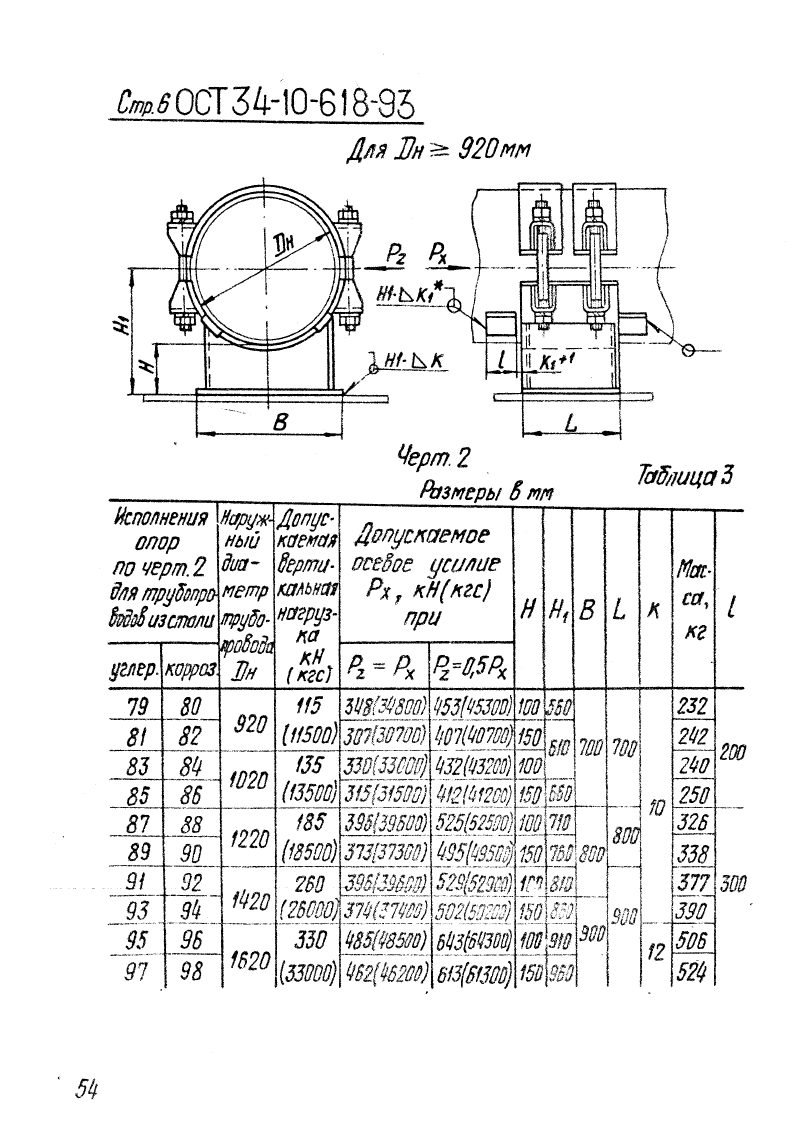 Стр.6 ОСТ 34-10-618-93
Для Dн ≥ 920 мм
Dн
Pz
Px
Н1-⊿ К1*
H1
H
Н1-⊿ К
l
К1+1
B
L
Черт. 2
Таблица 3
Размеры в мм
Исполнения опор по черт. 2 для трубопроводов из стали | Наружный диаметр трубопровода Dн | Допускаемая вертикальная нагрузка кН (кгс) | Допускаемое осевое усилие Px, кН (кгс) при | H | H1 | B | L | К | Масса, кг | l
углер. | корроз. | Pz = Px | Pz=0,5Px
79 | 80 | 920 | 115 | 348(34800) | 453(45300) | 100 | 560 | 700 | 700 | 10 | 232 | 200
81 | 82 | (11500) | 307(30700) | 407(40700) | 150 | 610 | 242
83 | 84 | 1020 | 135 | 330(33000) | 432(43200) | 100 | 240
85 | 86 | (13500) | 315(31500) | 412(41200) | 150 | 660 | 250
87 | 88 | 1220 | 185 | 396(39600) | 525(52500) | 100 | 710 | 800 | 800 | 326 | 300
89 | 90 | (18500) | 373(37300) | 495(49500) | 150 | 760 | 338
91 | 92 | 1420 | 260 | 396(39600) | 529(52900) | 100 | 810 | 900 | 377
93 | 94 | (26000) | 374(37400) | 502(50200) | 150 | 860 | 900 | 390
95 | 96 | 1620 | 330 | 485(48500) | 643(64300) | 100 | 910 | 12 | 506
97 | 98 | (33000) | 462(46200) | 613(61300) | 150 | 960 | 524
54